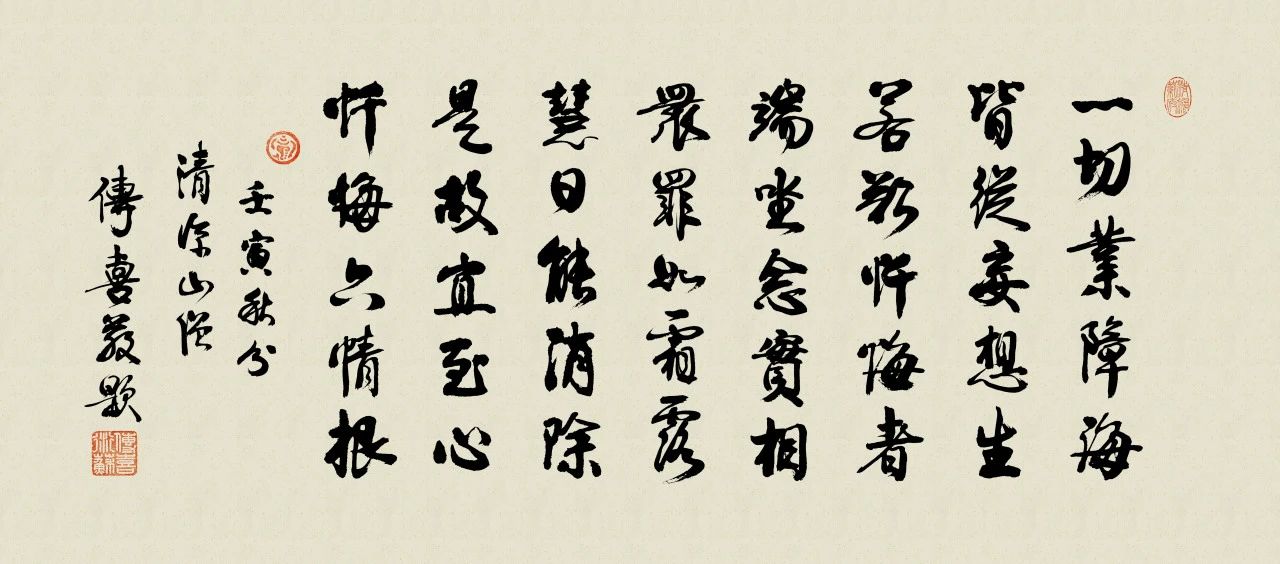 一切業障海
皆從妄想生
若欲忏悔者
端坐念實相
眾罪如霜露
慧日能消除
是故宜至心
忏悔六情根
壬寅秋分
清涼山僧
傳喜敬題
傳喜